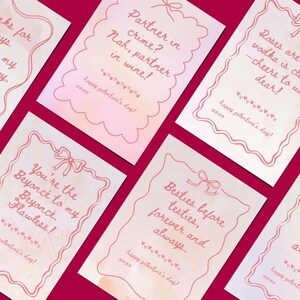 Partner in
crime?
Nah, partner
in wine!
happy galentine's day!
xoxo
Roses are
vodka is
cheers to
dear!
happy galentine's day!
You're the
Beyoncé to my
Beyoncé.
Flawless!
happy galentine's day!
Besties before
testies,
forever and
always.
happy galentine's day!
xoxo
my